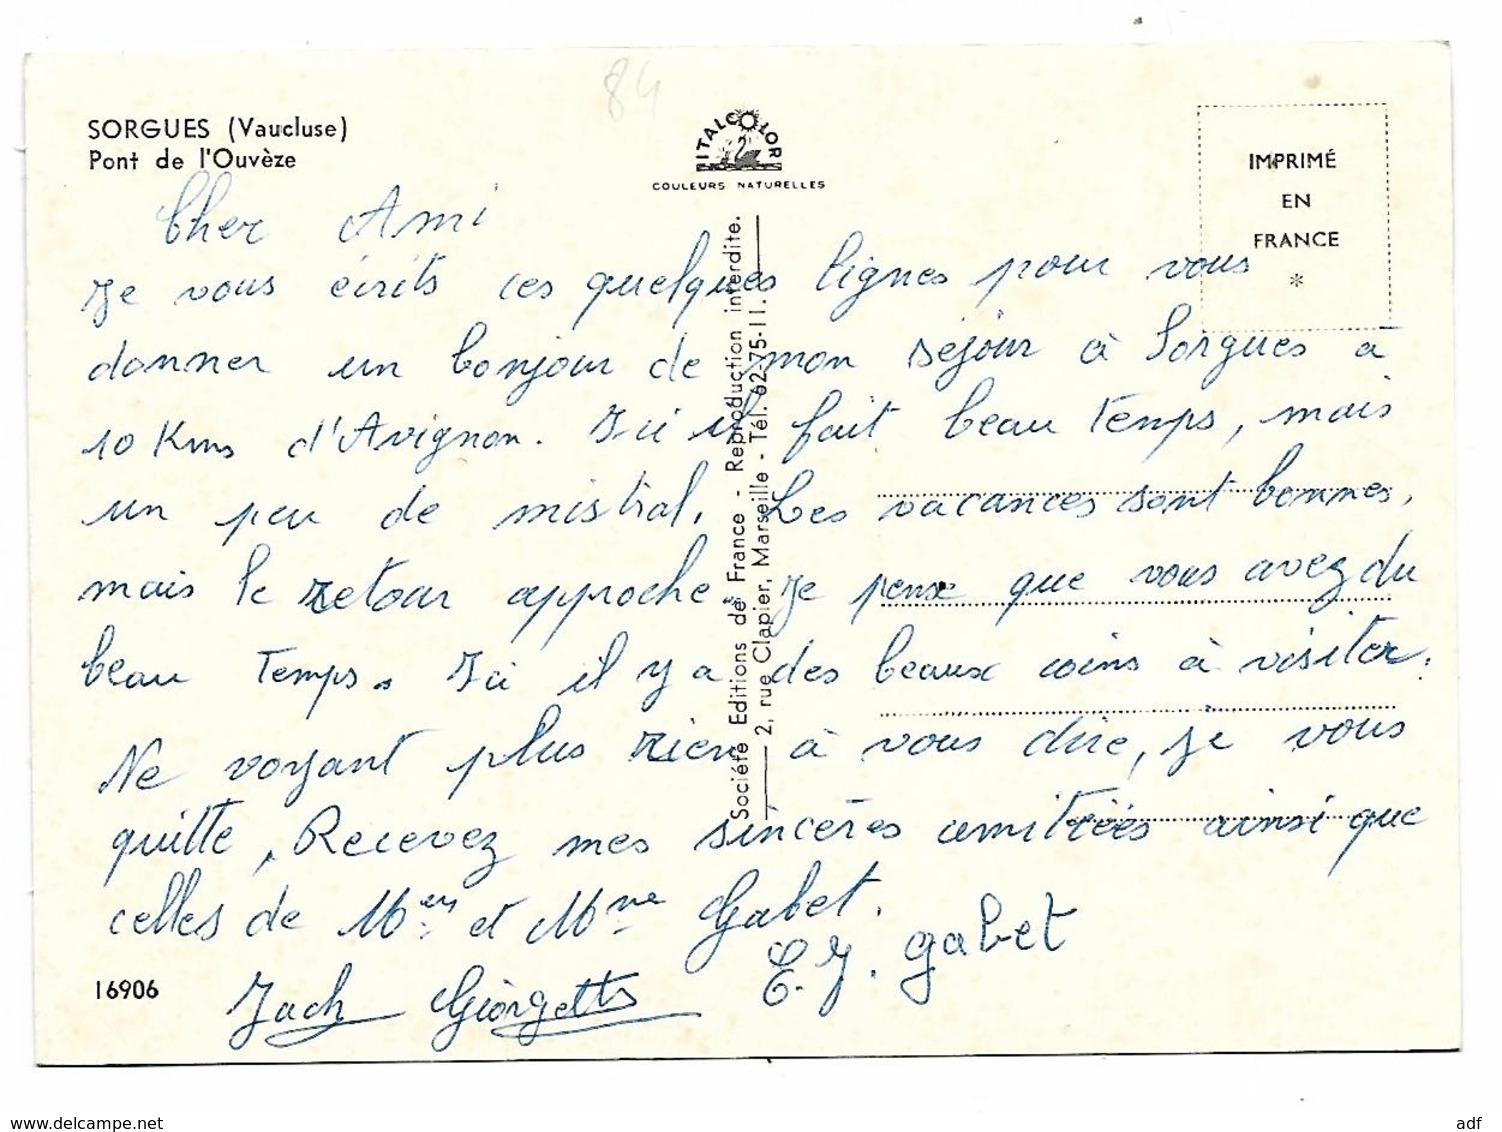 84
SORGUES (Vaucluse)
Pont de l'Ouvèze
ITALCOLOR
COULEURS NATURELLES
IMPRIMÉ
EN
FRANCE
*
Cher Ami
Je vous écrits ces quelques lignes pour vous
donner un bonjour de mon séjour à Sorgues à
10 Kms d'Avignon. Ici il fait beau temps, mais
un peu de mistral. Les vacances sont bonnes,
mais le retour approche. Je pense que vous avez du
beau temps. Ici il y a des beaux coins à visiter.
Ne voyant plus rien à vous dire, je vous
quitte, Recevez mes sincères amitiées ainsi que
celles de Mer et Mme Gabet.
E. J. gabet
Jach Giorgetts
16906
Société Editions de France - Reproduction interdite.
2, rue Clapier, Marseille - Tél. 62-75-11.
www.delcampe.net
adf